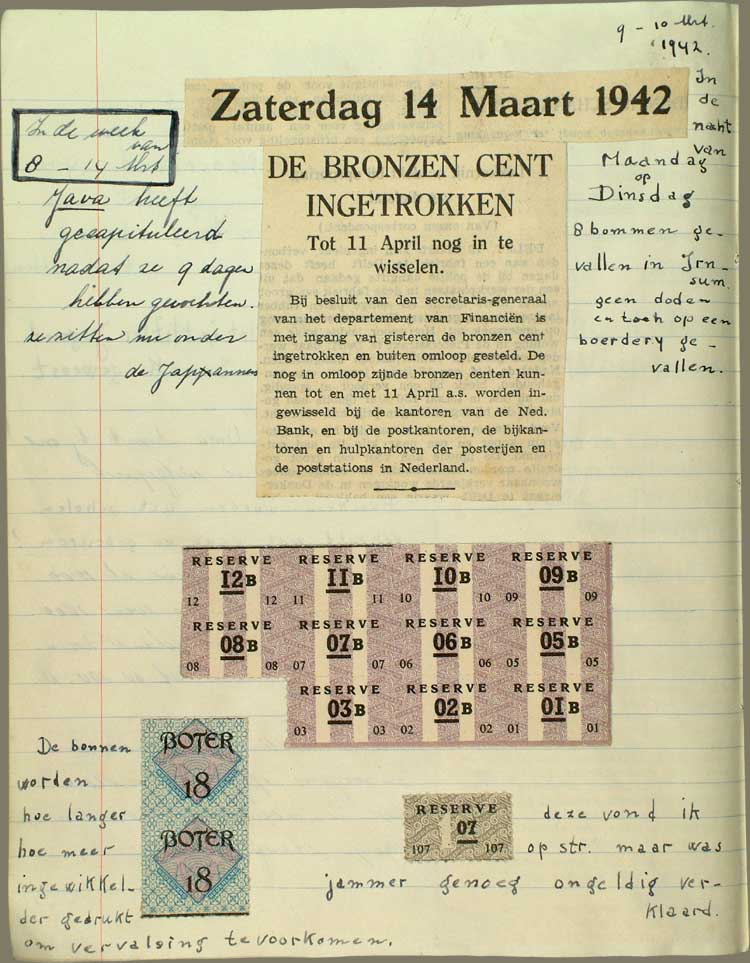 9 - 10 Mrt.
1942.
Zaterdag 14 Maart 1942
In de week
van
8 - 14 Mrt
Java heeft
gecapituleerd
nadat ze 9 dagen
hebben gevochten.
ze zitten nu onder
de Jappanners
DE BRONZEN CENT
INGETROKKEN
Tot 11 April nog in te
wisselen.
Bij besluit van den secretaris-generaal
van het departement van Financiën is
met ingang van gisteren de bronzen cent
ingetrokken en buiten omloop gesteld. De
nog in omloop zijnde bronzen centen kun-
nen tot en met 11 April a.s. worden in-
gewisseld bij de kantoren van de Ned.
Bank, en bij de postkantoren, de bijkan-
toren en hulpkantoren der posterijen en
de poststations in Nederland.
In
de
nacht
van
Maandag
op
Dinsdag
8 bommen ge-
vallen in Irn-
sum.
geen doden
en toch op een
boerdery ge-
vallen.
RESERVE RESERVE RESERVE RESERVE
12B 11B 10B 09B
12 12 11 11 10 10 09 09
RESERVE RESERVE RESERVE RESERVE
08B 07B 06B 05B
08 08 07 07 06 06 05 05
RESERVE RESERVE RESERVE
03B 02B 01B
03 03 02 02 01 01
De bonnen
worden
hoe langer
hoe meer
ingewikkel-
der gedrukt
om vervalsing tevoorkomen.
BOTER
18
BOTER
18
RESERVE
07
107 107
deze vond ik
op str. maar was
jammer genoeg ongeldig ver-
klaard.